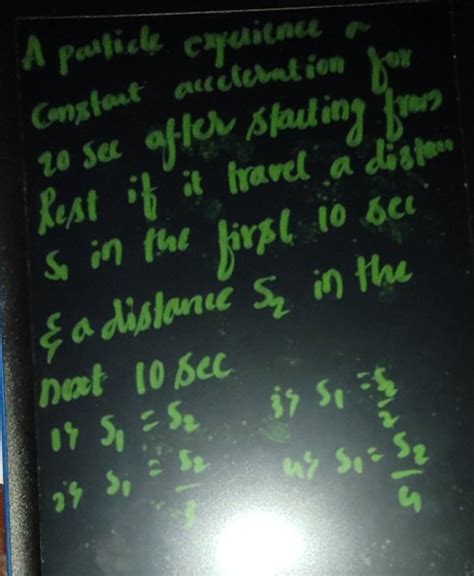 A particle experience a
constant acceleration for
20 sec after starting from
Rest if it travel a distan
S1 in the first 10 sec
& a distance S2 in the
next 10 sec
1) S1 = S2 3) S1 = S2/2
2) S1 = S2/3 4) S1 = S2/4